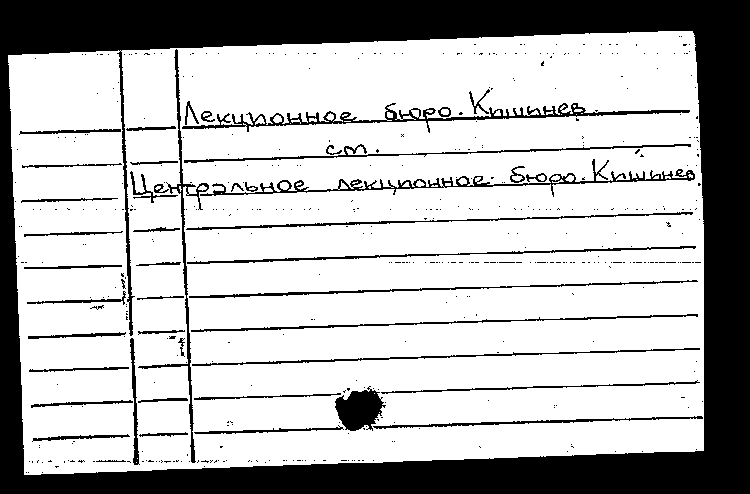 Лекционное бюро. Кишинев.
см.
Центральное лекционное бюро. Кишинев